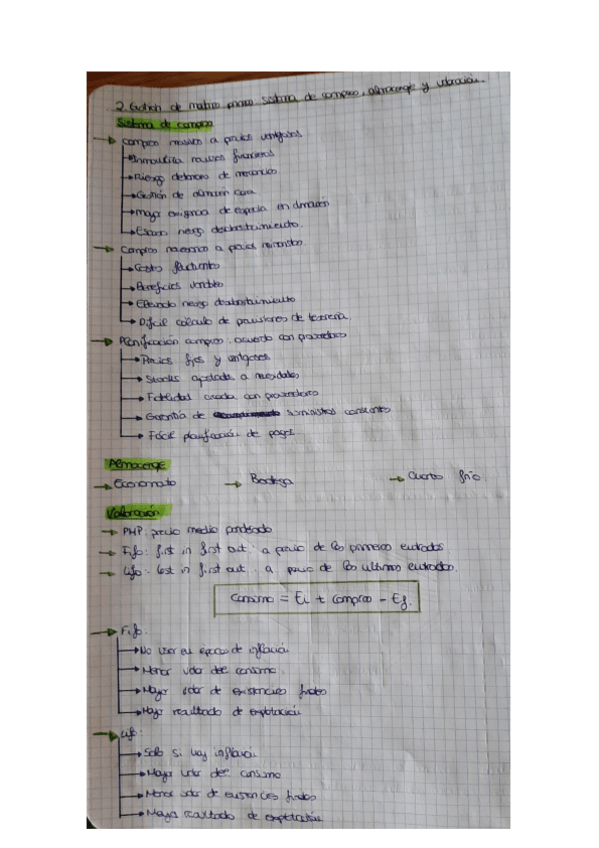 2. Gestión de materias primas sistema de compras, almacenaje y valoración.
Sistema de compras
Compras masivas a precios ventajosos
Inmoviliza recursos financieros
Riesgo deterioro de mercancías
Gestión de almacén cara
Mayor exigencia de espacio en almacén
Escaso riesgo desabastecimiento.
Compras necesarias a precios
Costes fluctuantes
Beneficios variables
Elevado riesgo desabastecimiento
Difícil cálculo de previsiones de tesorería.
Planificación compras: acuerdo con proveedores
Precios fijos y ventajosos
Stocks ajustados a necesidades
Fidelidad creada con proveedores
Garantía de suministros constantes
Fácil planificación de pagos
Almacenaje
Economato Bodega Cuarto frío
Valoración
PMP: precio medio ponderado
Fifo: first in first out: a precio de las primeras entradas.
Lifo: last in first out: a precio de las ultimas entradas.
Consumo = Ei + compras - Ef.
Fifo:
No usar en épocas de inflación
Menor valor del consumo
Mayor valor de existencias finales
Mayor resultado de explotación
Lifo:
Solo si hay inflación
Mayor valor del consumo
Menor valor de existencias finales
resultado de explotación